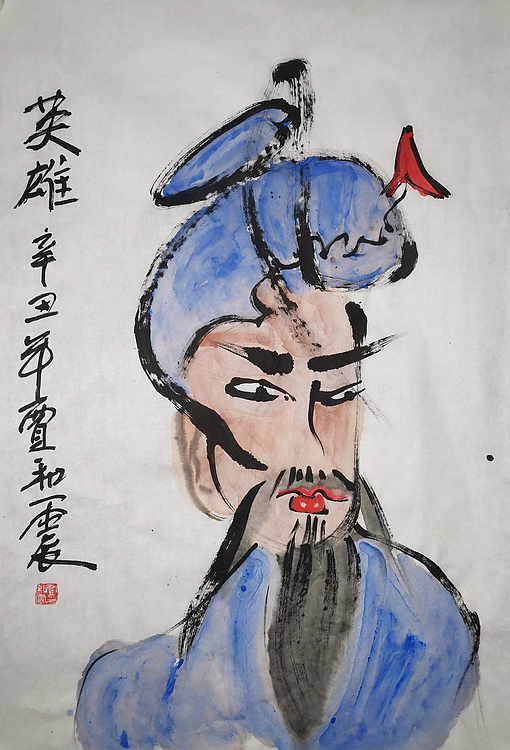 英雄辛丑年賈和震